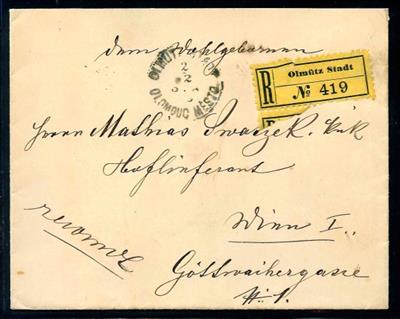 Dem Wohlgebornen
OLMÜTZ STADT
OLOMOUC MĚSTO
R Olmütz Stadt
№ 419
R
Herrn Mathias k.u.k.
Hoflieferant
recomm
Wien I.
Göttweihergasse
№. 1.